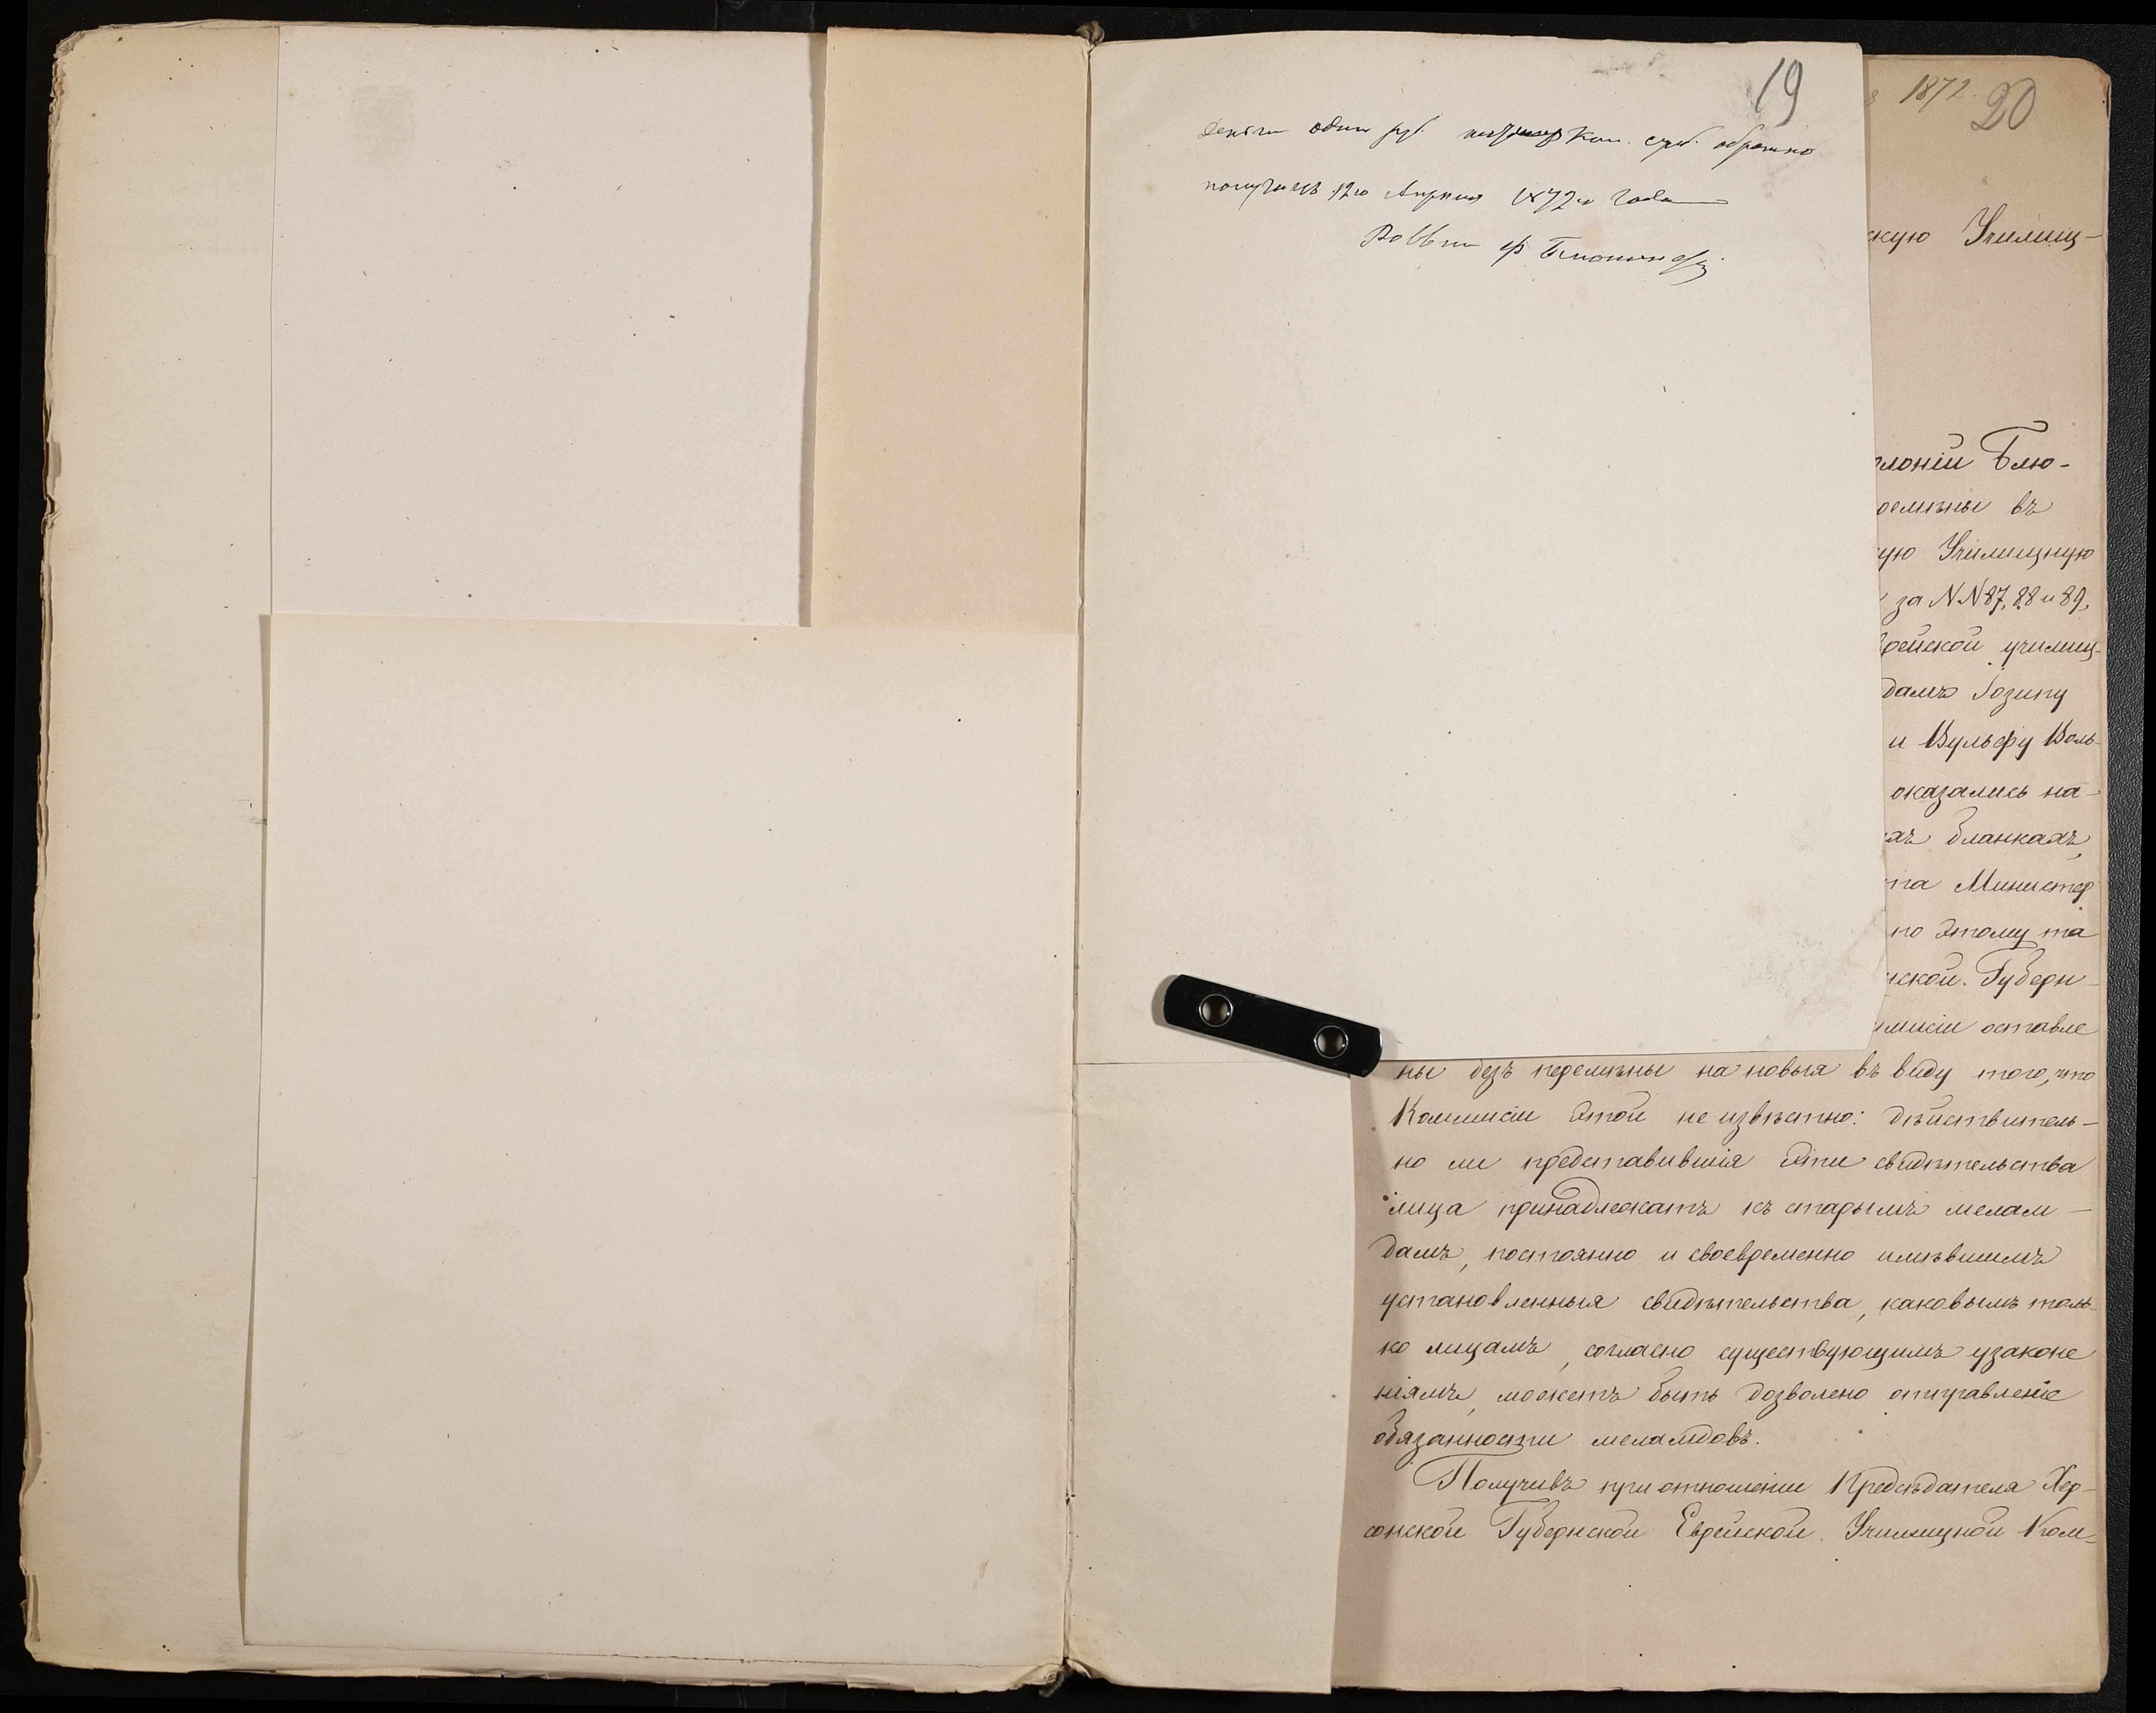 19
Деньги один руб. коп. сер. обратно
получилъ 12го Апреля 1872 го года
Раввин
1872
20
скую Училищ-
олоніи Блю-
въ
ую Училищную
за NN 87, 88 и 89,
врейской училищ-
дамъ Іозипу
и Вульфу Воль-
оказались на-
хъ бланкахъ,
та Министер
по этому та
нской Губерн-
ммисіи оставле
ны безъ перемѣны на новыя въ виду того, что
Коммисіи этой не извѣстно: дѣйствитель-
но ли представившія эти свидѣтельства
лица принадлежатъ къ старымъ мелам-
дамъ, постоянно и своевременно имѣвшимъ
установленныя свидѣтельства, каковымъ толь-
ко лицамъ, согласно существующимъ узаконе
ніямъ, можетъ быть дозволено отправленіе
обязанности меламдовъ.
Получивъ при отношеніи Предсѣдателя Хер-
сонской Губернской Еврейской Училищной Ком-